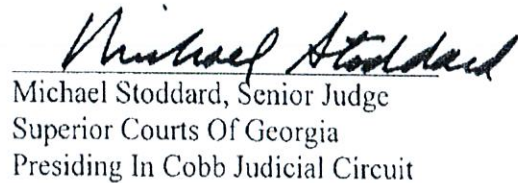 Michael Stoddard
Michael Stoddard, Senior Judge
Superior Courts Of Georgia
Presiding In Cobb Judicial Circuit